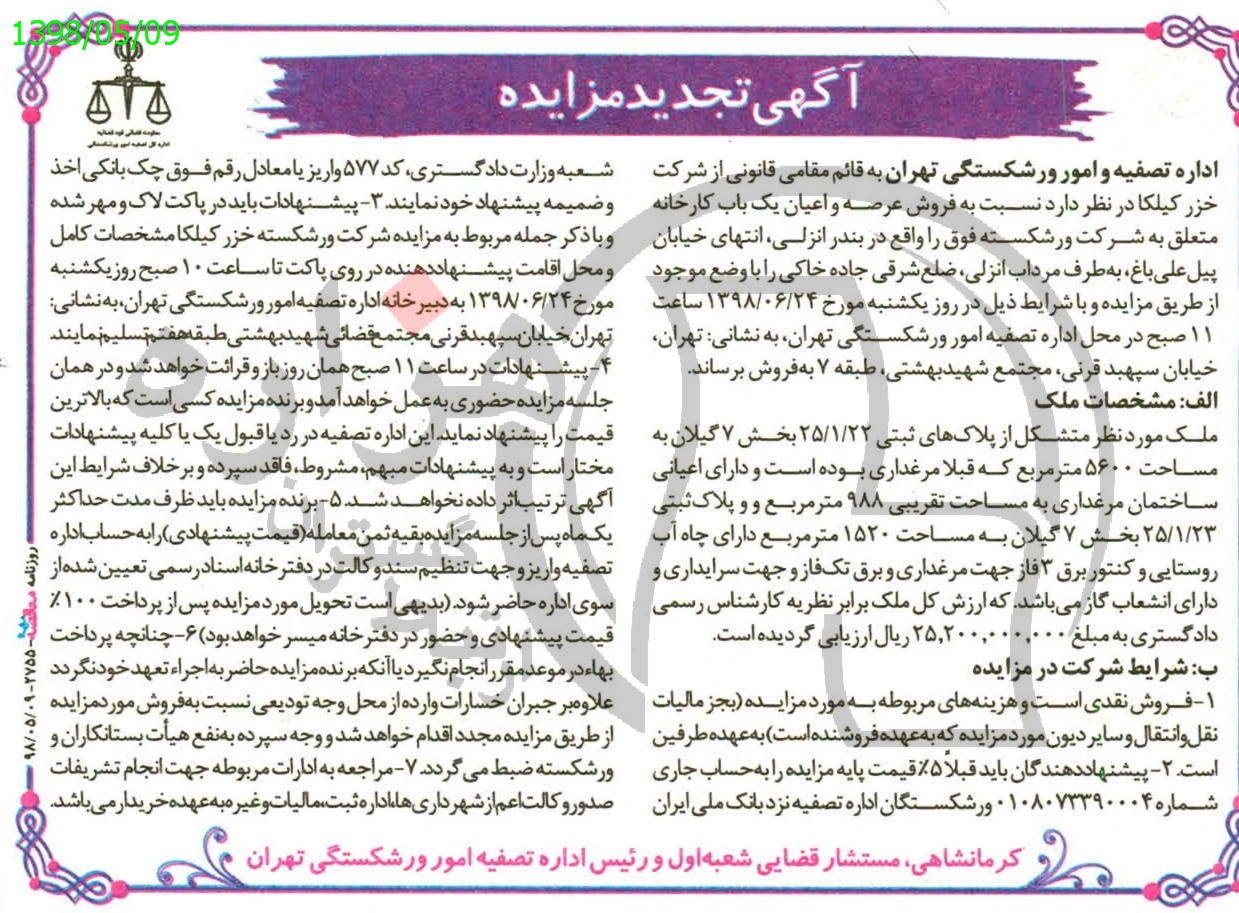 1398/05/09
معاونت قضائی قوه قضائیه
اداره کل تصفیه امور ورشکستگی
آگهی تجدید مزایده
اداره تصفیه و امور ورشکستگی تهران به قائم مقامی قانونی از شرکت
خزر کیلکا در نظر دارد نسبت به فروش عرصه و اعیان یک باب کارخانه
متعلق به شرکت ورشکسته فوق را واقع در بندر انزلی، انتهای خیابان
پیل‌علی‌باغ، به‌طرف مرداب انزلی، ضلع شرقی جاده خاکی را با وضع موجود
از طریق مزایده و با شرایط ذیل در روز یکشنبه مورخ ۱۳۹۸/۰۶/۲۴ ساعت
۱۱ صبح در محل اداره تصفیه امور ورشکستگی تهران، به نشانی: تهران،
خیابان سپهبد قرنی، مجتمع شهیدبهشتی، طبقه ۷ به‌فروش برساند.
الف: مشخصات ملک
ملک مورد نظر متشکل از پلاک‌های ثبتی ۲۵/۱/۲۲ بخش ۷ گیلان به
مساحت ۵۶۰۰ مترمربع که قبلا مرغداری بوده است و دارای اعیانی
ساختمان مرغداری به مساحت تقریبی ۹۸۸ مترمربع و و پلاک ثبتی
۲۵/۱/۲۳ بخش ۷ گیلان به مساحت ۱۵۲۰ مترمربع دارای چاه آب
روستایی و کنتور برق ۳فاز جهت مرغداری و برق تک‌فاز و جهت سرایداری و
دارای انشعاب گاز می‌باشد. که ارزش کل ملک برابر نظریه کارشناس رسمی
دادگستری به مبلغ ۲۵,۲۰۰,۰۰۰,۰۰۰ ریال ارزیابی گردیده است.
ب: شرایط شرکت در مزایده
۱- فروش نقدی است و هزینه‌های مربوطه به مورد مزایده (بجز مالیات
نقل‌وانتقال و سایر دیون مورد مزایده که به‌عهده فروشنده است) به‌عهده طرفین
است. ۲- پیشنهاددهندگان باید قبلاً ۵٪ قیمت پایه مزایده را به‌حساب جاری
شماره ۰۱۰۸۰۷۳۳۹۰۰۰۴ ورشکستگان اداره تصفیه نزد بانک ملی ایران
شعبه وزارت دادگستری، کد ۵۷۷ واریز یا معادل رقم فوق چک بانکی اخذ
و ضمیمه پیشنهاد خود نمایند. ۳- پیشنهادات باید در پاکت لاک و مهر شده
و با ذکر جمله مربوط به مزایده شرکت ورشکسته خزر کیلکا مشخصات کامل
و محل اقامت پیشنهاددهنده در روی پاکت تا ساعت ۱۰ صبح روز یکشنبه
مورخ ۱۳۹۸/۰۶/۲۴ به دبیرخانه اداره تصفیه امور ورشکستگی تهران، به نشانی:
تهران، خیابان سپهبد قرنی مجتمع قضائی شهید بهشتی طبقه هفتم تسلیم نمایند.
۴- پیشنهادات در ساعت ۱۱ صبح همان روز باز و قرائت خواهد شد و در همان
جلسه مزایده حضوری به عمل خواهد آمد و برنده مزایده کسی است که بالاترین
قیمت را پیشنهاد نماید. این اداره تصفیه در رد یا قبول یک یا کلیه پیشنهادات
مختار است و به پیشنهادات مبهم، مشروط، فاقد سپرده و برخلاف شرایط این
آگهی ترتیب اثر داده نخواهد شد. ۵- برنده مزایده باید ظرف مدت حداکثر
یک ماه پس از جلسه مزایده بقیه ثمن معامله (قیمت پیشنهادی) را به حساب اداره
تصفیه واریز و جهت تنظیم سند وکالت در دفترخانه اسناد رسمی تعیین شده از
سوی اداره حاضر شود. (بدیهی است تحویل مورد مزایده پس از پرداخت ۱۰۰٪
قیمت پیشنهادی و حضور در دفترخانه میسر خواهد بود) ۶- چنانچه پرداخت
بهاء در موعد مقرر انجام نگیرد یا آنکه برنده مزایده حاضر به اجراء تعهد خود نگردد
علاوه‌بر جبران خسارات وارده از محل وجه تودیعی نسبت به فروش مورد مزایده
از طریق مزایده مجدد اقدام خواهد شد و وجه سپرده به نفع هیأت بستانکاران و
ورشکسته ضبط می‌گردد. ۷- مراجعه به ادارات مربوطه جهت انجام تشریفات
صدور وکالت اعم از شهرداری‌ها، اداره ثبت، مالیات و غیره به عهده خریدار می‌باشد.
کرمانشاهی، مستشار قضایی شعبه اول و رئیس اداره تصفیه امور ورشکستگی تهران
روزنامه مناقصه مزایده - ۲۷۵۵ - ۹۸/۰۵/۰۹
هزاره